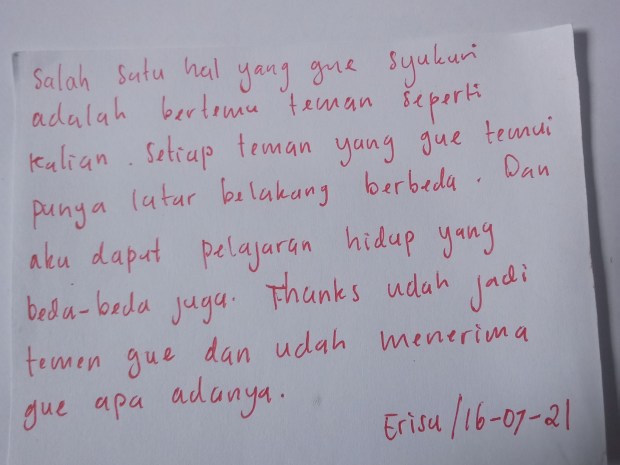 Salah satu hal yang gue syukuri
adalah bertemu teman seperti
kalian. Setiap teman yang gue temui
punya latar belakang berbeda. Dan
aku dapat pelajaran hidup yang
beda-beda juga. Thanks udah jadi
temen gue dan udah menerima
gue apa adanya.
Erisa/16-07-21